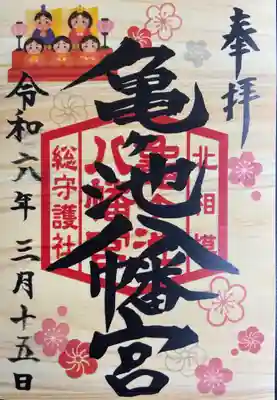 奉拝
北相模
亀ヶ池八幡宮
亀ヶ池八幡宮
総守護社
令和六年三月十五日